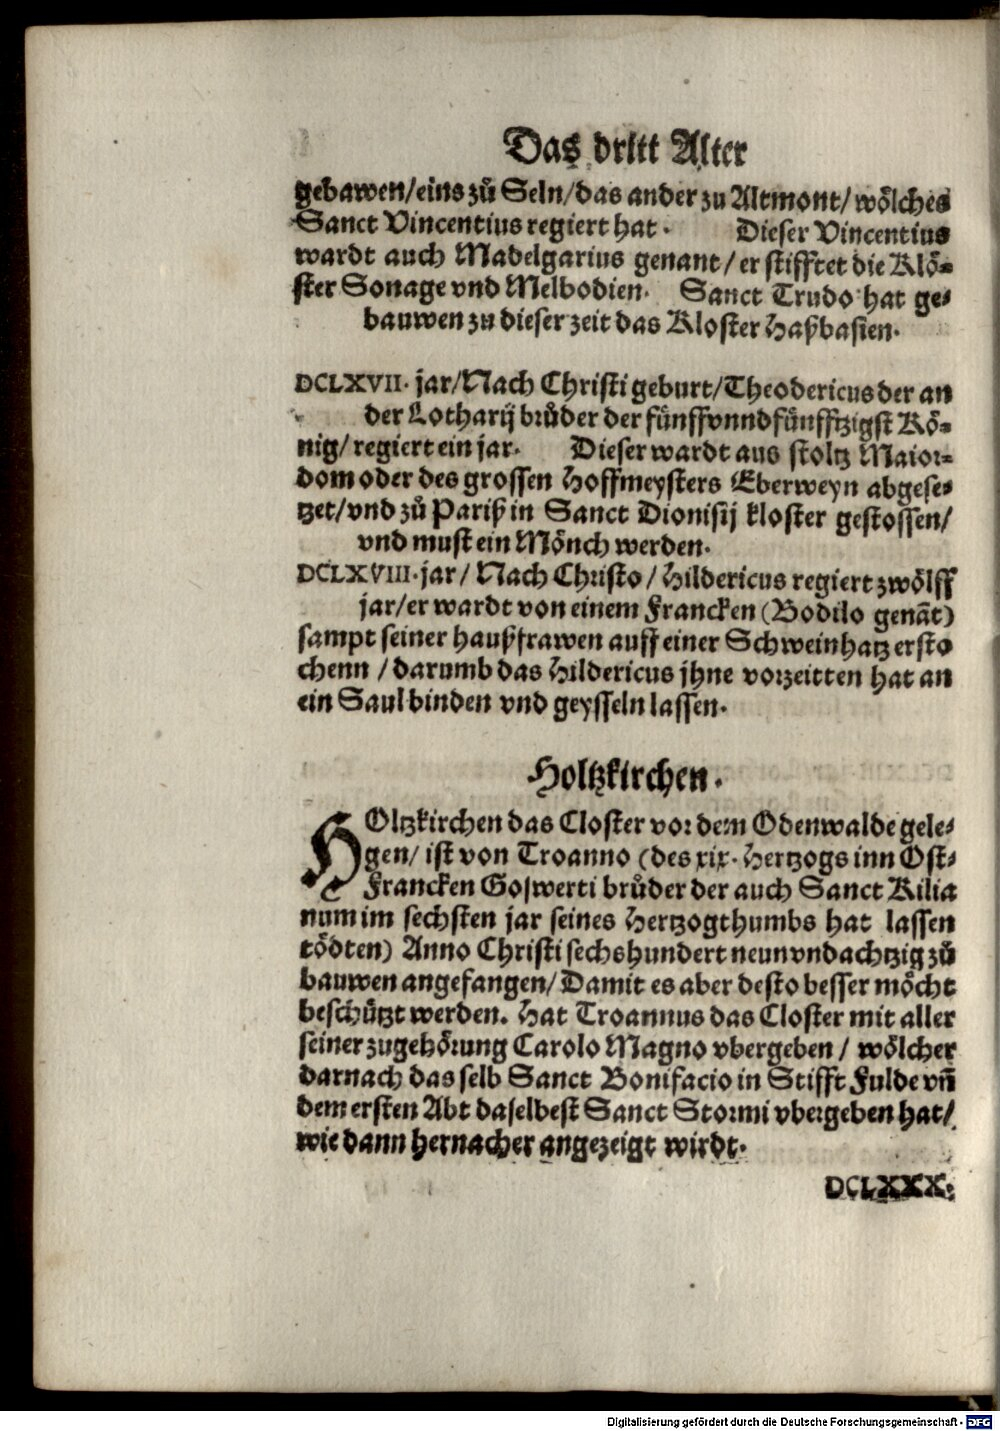 Das dritt Alter
gebawen/eins zů Seln/das ander zu Altmont/wölches
Sanct Vincentius regiert hat. Dieser Vincentius
wardt auch Madelgarius genant/er stifftet die Klö-
ster Sonage vnd Melbodien. Sanct Trudo hat ge-
bauwen zu dieser zeit das Kloster Haßbasien.
DCLXVII. jar/Nach Christi geburt/Theodericus der an
der Lotharij brůder der fünffvnndfünfftzigst Kö-
nig/regiert ein jar. Dieser wardt aus stoltz Maior-
dom oder des grossen Hoffmeysters Eberweyn abgese-
tzet/vnd zů Pariß in Sanct Dionisij kloster gestossen/
vnd must ein Mönch werden.
DCLXVIII. jar/Nach Christo/Hildericus regiert zwölff
jar/er wardt von einem Francken (Bodilo genāt)
sampt seiner haußfrawen auff einer Schweinhatz ersto
chenn /darumb das Hildericus jhne vorzeitten hat an
ein Saul binden vnd geysseln lassen.
Holtzkirchen.
HOltzkirchen das Closter vor dem Odenwalde gele-
gen/ist von Troanno (des xix. Hertzogs inn Ost-
Francken Goswerti brůder der auch Sanct Kilia
num im sechsten jar seines Hertzogthumbs hat lassen
tödten) Anno Christi sechshundert neunvndachtzig zů
bauwen angefangen/Damit es aber desto besser möcht
beschützt werden. Hat Troannus das Closter mit aller
seiner zugehörung Carolo Magno vbergeben/wölcher
darnach das selb Sanct Bonifacio in Stifft Fulde vñ
dem ersten Abt daselbest Sanct Stormi vbergeben hat/
wie dann hernacher angezeigt wirdt.
DCLXXX.
Digitalisierung gefördert durch die Deutsche Forschungsgemeinschaft - DFG